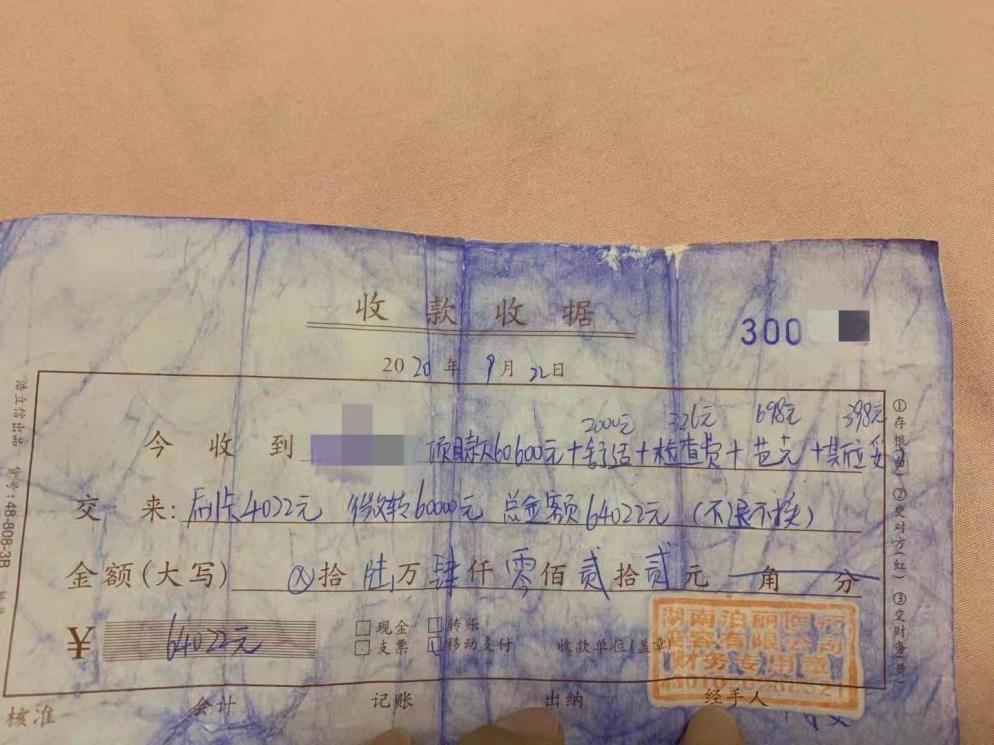 收款收据
300
2020年9月22日
2000元 326元 698元 398元
今收到 项目款60600元+舒适+检查费+芭克+
交来:刷卡4022元 微转60000元 总金额64022元 (不退不换)
金额(大写) ⊗拾陆万肆仟零佰贰拾贰元 角 分
¥ 64022元
现金 转账
支票 移动支付 收款单位(盖章)
湖南泊丽医疗
美容有限公司
财务专用章
核准 会计 记账 出纳 经手人
浩立信出品 货号:48-808-3B
①存根 ②交对方(红) ③交财务